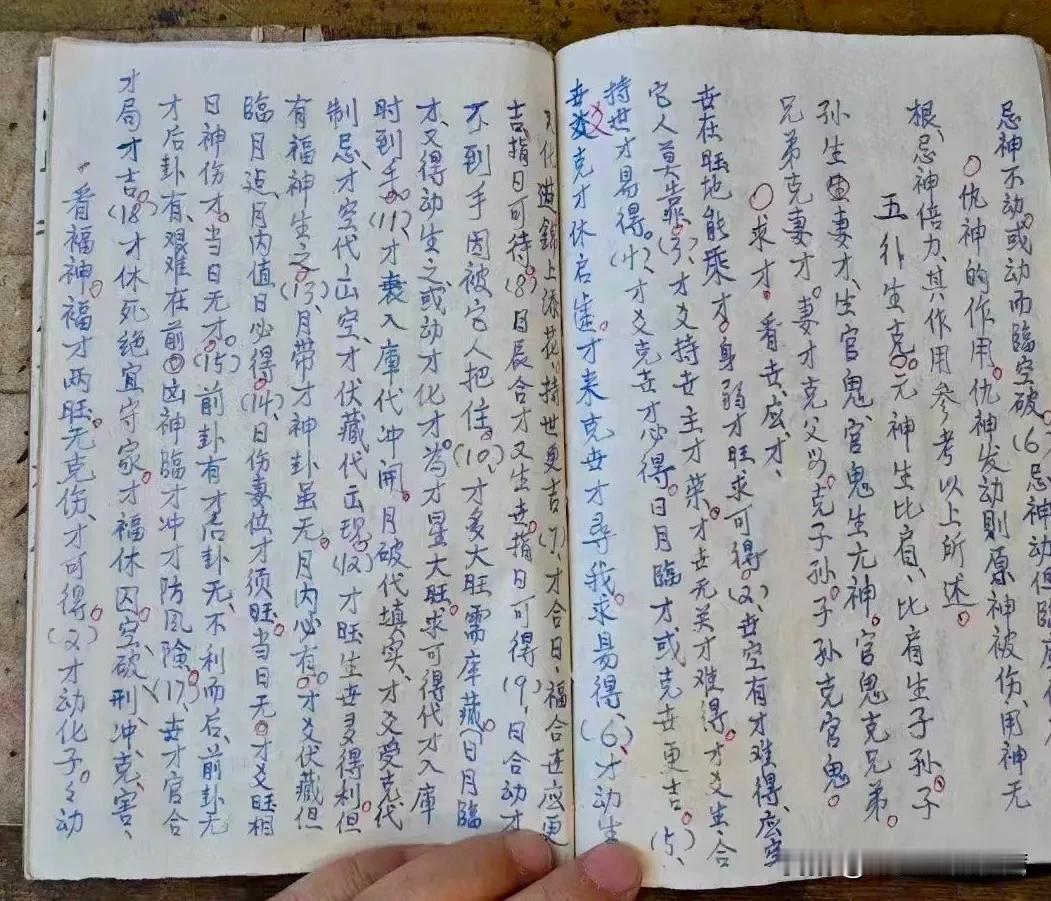 忌神不动。或动而临空破。(6)忌神动但临
〇仇神的作用。仇神发动则原神被伤、用神无
根、忌神倍力、其作用参考以上所述。
五 卦生克。元神生比肩、比肩生子孙。子
孙生妻才、生官鬼、官鬼生元神。官鬼克兄弟。
兄弟克妻才。妻才克父。克子孙。子孙克官鬼。
〇求才。看世、应、才、
世在旺地能乘才。身弱才旺求可得。(2)、世空有才难得、应空
它人莫靠。(3)、才爻持世主才荣。才世无关才难得。才爻生合
持世才易得。(4)、才爻克世才必得。日月临才或克世更吉。(5)、
世爻克才休启造。才来克世才寻我。求易得、(6)、才动生
化进锦上添花、持世更吉(7)、才合日、福合进应更
吉、指日可待。(8)日辰合才又生世。指日可得(9)、日合动才
不到手因被它人把住。(10)、才多大旺需库藏。(日月临
才、又得动生之或动才化才。为才星大旺。求可得代才入库
时到手。(11)、才衰入库代冲开。月破代填实、才爻受克代
制忌、才空代出空、才伏藏代出现。(12)才旺生世多得利。但
有福神生之。(13)、月带才神卦虽无。月内必有。才爻伏藏但
临月建、月内值日必得。(14)、日伤妻位才须旺。当日无。才爻旺相
日神伤才。当日无才。(15)前卦有才后卦无、不利而后、前卦无
才后卦有、艰难在前。凶神临才冲才防风险。(17)世才官合
才局才吉。(18)才休死绝宜守家。才福休囚。空、破刑、冲、克、害、
看福神。福才两旺。无克伤、才可得。(2)才动化子。々动